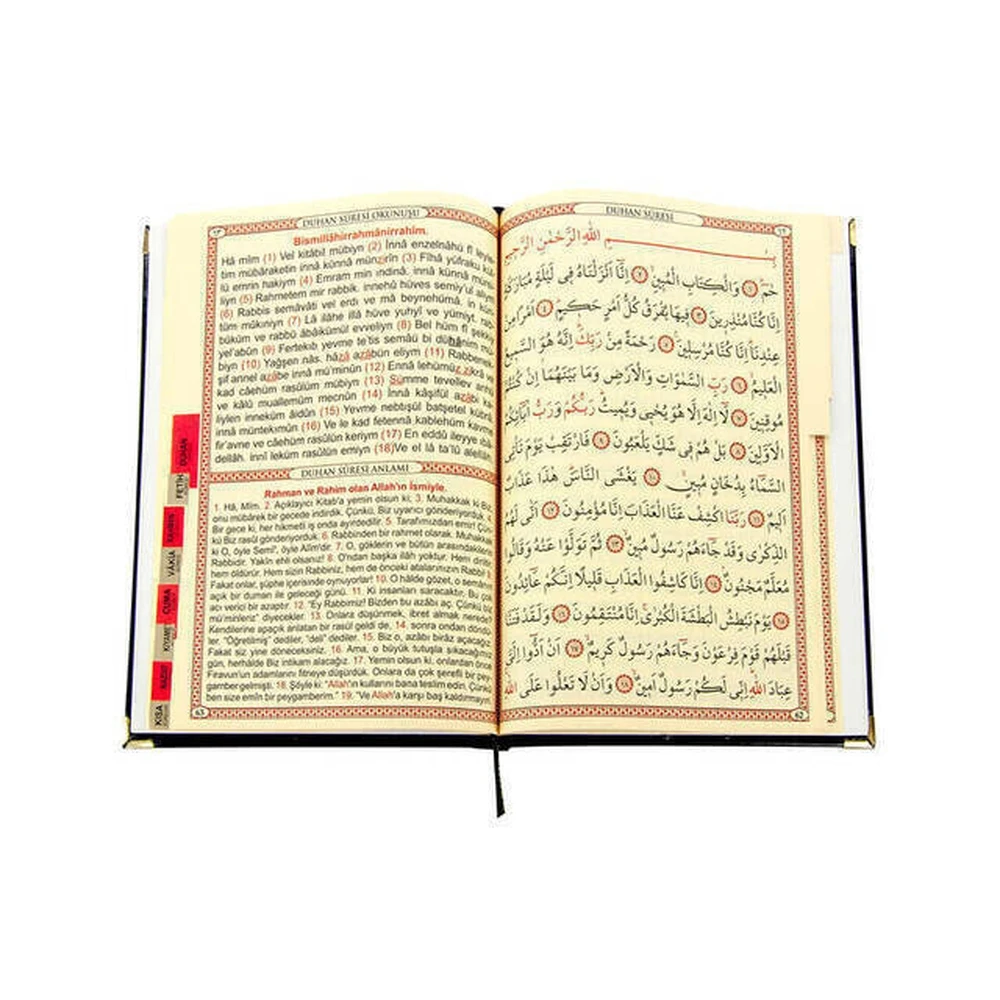 DUHAN SÛRESİ OKUNUŞU
Bismillâhirrahmânirrahîm.
Hâ mîm (1) Vel kitâbil mübîyn (2) İnnâ enzelnâhü fî leyle
tim mübâraketin innâ künnâ münzirîn (3) Fîhâ yüfraku kü
lü emrin hakiym (4) Emram min ındinâ, innâ künnâ mürsi
liyn (5) Rahmetem mir rabbik, innehû hüves semiy'ul aliym
(6) Rabbis semâvâti vel erdı ve mâ beynehümâ, in kün
tüm mûkıniyn (7) Lâ ilâhe illâ hüve yuhyî ve yümiyt, rab
büküm ve rabbü âbâikümül evveliyn (8) Bel hüm fî şekkiy
yel'abûn (9) Fertekıb yevme te'tis semâü bi dühânim mü
biyn (10) Yağşen nâs, hâzâ azâbün eliym (11) Rabbenek
şif annel azâbe innâ mü'minûn (12) Ennâ lehümüz zikrâ ve
kad câehüm rasûlüm mübiyn (13) Sümme tevellev anhü
ve kâlû muallemüm mecnûn (14) İnnâ kâşifül azâbi ka
liylen inneküm âidûn (15) Yevme nebtışül batşetel kübrâ,
innâ müntekımûn (16) Ve le kad fetennâ kablehüm kavme
fir'avne ve câehüm rasûlün keriym (17) En eddû ileyye ıbâ
dellâh, innî leküm rasûlün emiyn (18) Ve el lâ ta'lû alellâh
DUHAN SÛRESİ ANLAMI
Rahman ve Rahim olan Allah'ın İsmiyle.
1. Hâ, Mîm. 2. Açıklayıcı Kitab'a yemin olsun ki; 3. Muhakkak ki Biz
onu mübârek bir gecede indirdik. Çünkü, Biz uyarıcı gönderiyorduk.
Bir gece ki, her hikmetli iş onda ayırdedilir. 5. Tarafımızdan emir! Çün
kü Biz rasûl gönderiyorduk. 6. Rabbinden bir rahmet olarak. Muhakkak
ki O, öyle Semî', öyle Alîm'dir. 7. O, göklerin ve bütün arasındakilerin
Rabbidir. Yakîn ehli olsanız! 8. O'ndan başka ilâh yoktur. Hem diriltir
hem öldürür. Hem sizin Rabbiniz, hem de önceki atalarınızın Rabbi!
Fakat onlar, şüphe içerisinde oynuyorlar! 10. O hâlde gözet, o semânın
açık bir duman ile geleceği günü. 11. Ki insanları saracaktır. Bu çok
acı verici bir azaptır. 12. "Ey Rabbimiz! Bizden bu azâbı aç. Çünkü biz
mü'minleriz" diyecekler. 13. Onlara düşünmek, ibret almak nerede!
Kendilerine apaçık anlatan bir rasûl geldi de, 14. sonra ondan döndü
ler. "Öğretilmiş" dediler, "deli" dediler. 15. Biz o, azâbı birâz açacağız.
Fakat siz yine döneceksiniz. 16. Ama, o büyük tutuşla sıkacağımız
gün, herhâlde Biz intikam alacağız. 17. Yemin olsun ki, onlardan önce
Firavun'un adamlarını fitneye düşürdük. Onlara da çok şerefli bir pey
gamber gelmişti. 18. Şöyle ki: "Allah'ın kullarını bana teslim edin. Çünkü
ben size emîn bir peygamberim." 19. "Ve Allah'a karşı baş kaldırmayın
63
DUHAN
FETİH
RAHMAN
VAKIA
CUMA
KIYAMET
KISA
DUHAN SÛRESİ
بِسْمِ اللهِ الرَّحْمٰنِ الرَّحِيمِ
حٰمٓ ﴿١﴾ وَالْكِتَابِ الْمُبِينِ ﴿٢﴾ اِنَّٓا اَنْزَلْنَاهُ فِى لَيْلَةٍ مُبَارَكَةٍ
اِنَّا كُنَّا مُنْذِرِينَ ﴿٣﴾ فِيهَا يُفْرَقُ كُلُّ اَمْرٍ حَكِيمٍ ﴿٤﴾ اَمْرًا مِنْ
عِنْدِنَا اِنَّا كُنَّا مُرْسِلِينَ ﴿٥﴾ رَحْمَةً مِنْ رَبِّكَ اِنَّهُ هُوَ السَّمِيعُ
الْعَلِيمُ ﴿٦﴾ رَبِّ السَّمٰوَاتِ وَالْاَرْضِ وَمَا بَيْنَهُمَا اِنْ كُنْتُمْ
مُوقِنِينَ ﴿٧﴾ لَٓا اِلٰهَ اِلَّا هُوَ يُحْيِى وَيُمِيتُ رَبُّكُمْ وَرَبُّ اٰبَٓائِكُمُ
الْاَوَّلِينَ ﴿٨﴾ بَلْ هُمْ فِى شَكٍّ يَلْعَبُونَ ﴿٩﴾ فَارْتَقِبْ يَوْمَ تَاْتِى
السَّمَٓاءُ بِدُخَانٍ مُبِينٍ ﴿١٠﴾ يَغْشَى النَّاسَ هٰذَا عَذَابٌ
اَلِيمٌ ﴿١١﴾ رَبَّنَا اكْشِفْ عَنَّا الْعَذَابَ اِنَّا مُؤْمِنُونَ ﴿١٢﴾ اَنّٰى لَهُمُ
الذِّكْرٰى وَقَدْ جَٓاءَهُمْ رَسُولٌ مُبِينٌ ﴿١٣﴾ ثُمَّ تَوَلَّوْا عَنْهُ وَقَالُوا
مُعَلَّمٌ مَجْنُونٌ ﴿١٤﴾ اِنَّا كَاشِفُوا الْعَذَابِ قَلِيلًا اِنَّكُمْ عَٓائِدُونَ
﴿١٥﴾ يَوْمَ نَبْطِشُ الْبَطْشَةَ الْكُبْرٰى اِنَّا مُنْتَقِمُونَ ﴿١٦﴾ وَلَقَدْ فَتَنَّا
قَبْلَهُمْ قَوْمَ فِرْعَوْنَ وَجَٓاءَهُمْ رَسُولٌ كَرِيمٌ ﴿١٧﴾ اَنْ اَدُّٓوا اِلَىَّ
عِبَادَ اللهِ اِنِّى لَكُمْ رَسُولٌ اَمِينٌ ﴿١٨﴾ وَاَنْ لَا تَعْلُوا عَلَى اللهِ
62